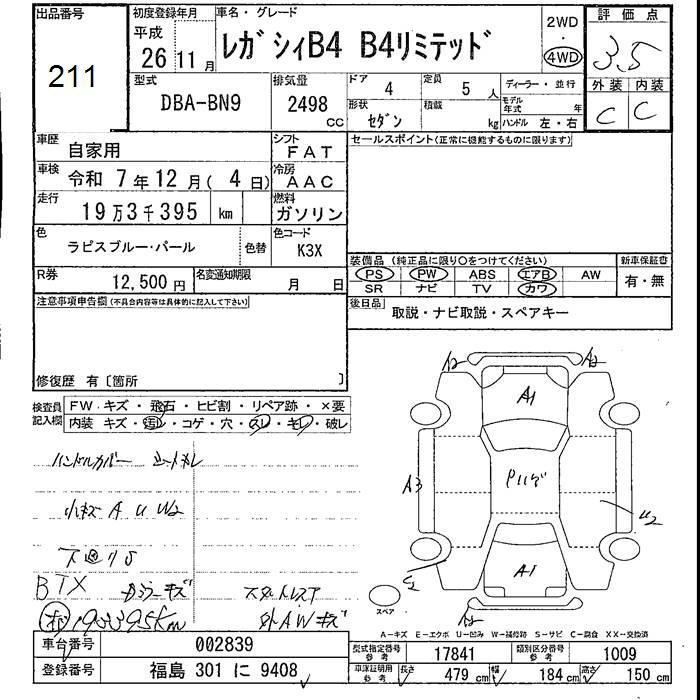 出品番号
211
初度登録年月
平成
26年11月
車名・グレード
レガシィB4 B4リミテッド
2WD
4WD
評価点
3.5
外装 内装
C C
型式
DBA-BN9
排気量
2498
CC
ドア
4
定員
5人
形状
セダン
積載
kg
ディーラー・並行
モデル年式
年
ハンドル 左・右
車歴
自家用
シフト
FAT
車検
令和 7年12月(4日)
冷房
AAC
走行
19万3千395 km
燃料
ガソリン
色
ラピスブルー・パール
色替
色コード
K3X
R券
12,500円
名変通知期限
月 日
セールスポイント(正常に機能するものに限ります)
装備品(純正品に限り○をつけてください)
PS PW ABS エアB AW
SR ナビ TV カワ
新車保証書
有・無
後日品
取説・ナビ取説・スペアキー
注意事項申告欄(不具合内容等は具体的に記入して下さい)
修復歴 有〔箇所 〕
検査員記入欄
FW.キズ・飛石・ヒビ割・リペア跡・×要
内装 キズ・汚れ・コゲ・穴・スレ・キレ・破レ
ハンドルカバー シートキレ
小キズ A U W2
下廻りS
BTX
193395km
スタットレスア
外AWキズ
A2 A2
A1
A3
Pルーフ
U2
A1
A2
スペア
A-キズ E-エクボ U-凹み W-補修跡 S-サビ C-腐食 XX-交換済
車台番号
002839
登録番号
福島 301 に 9408
型式指定番号
参考
17841
類別区分番号
参考
1009
車庫証明用
参考
長さ
479 cm
幅
184 cm
高さ
150 cm